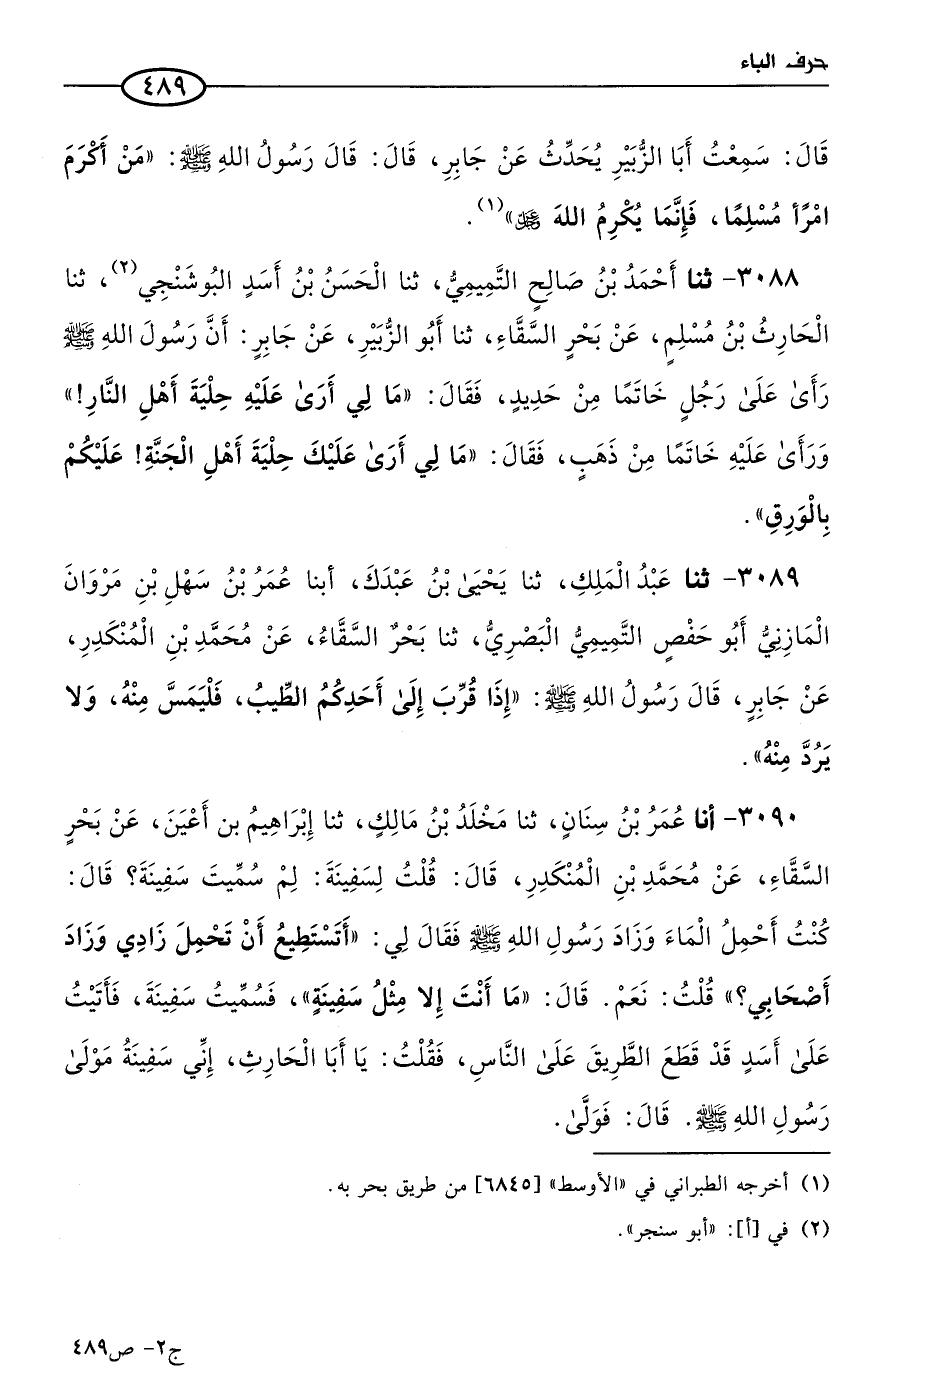 حرف الباء
٤٨٩
قَالَ: سَمِعْتُ أَبَا الزُّبَيْرِ يُحَدِّثُ عَنْ جَابِرٍ، قَالَ: قَالَ رَسُولُ اللهِ ﷺ: «مَنْ أَكْرَمَ
امْرًأ مُسْلِمًا، فَإِنَّمَا يُكْرِمُ اللهَ ﷻ»(١).
٣٠٨٨- ثنا أَحْمَدُ بْنُ صَالِحٍ التَّمِيمِيُّ، ثنا الْحَسَنُ بْنُ أَسَدٍ البُوشَنْجِي(٢)، ثنا
الْحَارِثُ بْنُ مُسْلِمٍ، عَنْ بَحْرٍ السَّقَّاءِ، ثنا أَبُو الزُّبَيْرِ، عَنْ جَابِرٍ: أَنَّ رَسُولَ اللهِ ﷺ
رَأَىٰ عَلَىٰ رَجُلٍ خَاتَمًا مِنْ حَدِيدٍ، فَقَالَ: «مَا لِي أَرَىٰ عَلَيْهِ حِلْيَةَ أَهْلِ النَّارِ!»
وَرَأَىٰ عَلَيْهِ خَاتَمًا مِنْ ذَهَبٍ، فَقَالَ: «مَا لِي أَرَىٰ عَلَيْكَ حِلْيَةَ أَهْلِ الْجَنَّةِ! عَلَيْكُمْ
بِالْوَرِقِ».
٣٠٨٩- ثنا عَبْدُ الْمَلِكِ، ثنا يَحْيَىٰ بْنُ عَبْدَكَ، أبنا عُمَرُ بْنُ سَهْلِ بْنِ مَرْوَانَ
الْمَازِنِيُّ أَبُو حَفْصٍ التَّمِيمِيُّ الْبَصْرِيُّ، ثنا بَحْرٌ السَّقَّاءُ، عَنْ مُحَمَّدِ بْنِ الْمُنْكَدِرِ،
عَنْ جَابِرٍ، قَالَ رَسُولُ اللهِ ﷺ: «إِذَا قُرِّبَ إِلَىٰ أَحَدِكُمُ الطِّيبُ، فَلْيَمَسَّ مِنْهُ، وَلا
يَرُدَّ مِنْهُ».
٣٠٩٠- أنا عُمَرُ بْنُ سِنَانٍ، ثنا مَخْلَدُ بْنُ مَالِكٍ، ثنا إِبْرَاهِيمُ بن أَعْيَنَ، عَنْ بَحْرٍ
السَّقَّاءِ، عَنْ مُحَمَّدِ بْنِ الْمُنْكَدِرِ، قَالَ: قُلْتُ لِسَفِينَةَ: لِمْ سُمِّيتَ سَفِينَةَ؟ قَالَ:
كُنْتُ أَحْمِلُ الْمَاءَ وَزَادَ رَسُولِ اللهِ ﷺ فَقَالَ لِي: «أَتَسْتَطِيعُ أَنْ تَحْمِلَ زَادِي وَزَادَ
أَصْحَابِي؟» قُلْتُ: نَعَمْ. قَالَ: «مَا أَنْتَ إِلا مِثْلُ سَفِينَةٍ»، فَسُمِّيتُ سَفِينَةَ، فَأَتَيْتُ
عَلَىٰ أَسَدٍ قَدْ قَطَعَ الطَّرِيقَ عَلَىٰ النَّاسِ، فَقُلْتُ: يَا أَبَا الْحَارِثِ، إِنِّي سَفِينَةُ مَوْلَىٰ
رَسُولِ اللهِ ﷺ. قَالَ: فَوَلَّىٰ.
(١) أخرجه الطبراني في «الأوسط» [٦٨٤٥] من طريق بحر به.
(٢) في [أ]: «أبو سنجر».
ج٢- ص٤٨٩